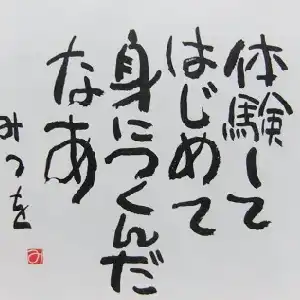 体験して
はじめて
身につくんだ
なあ
みつを